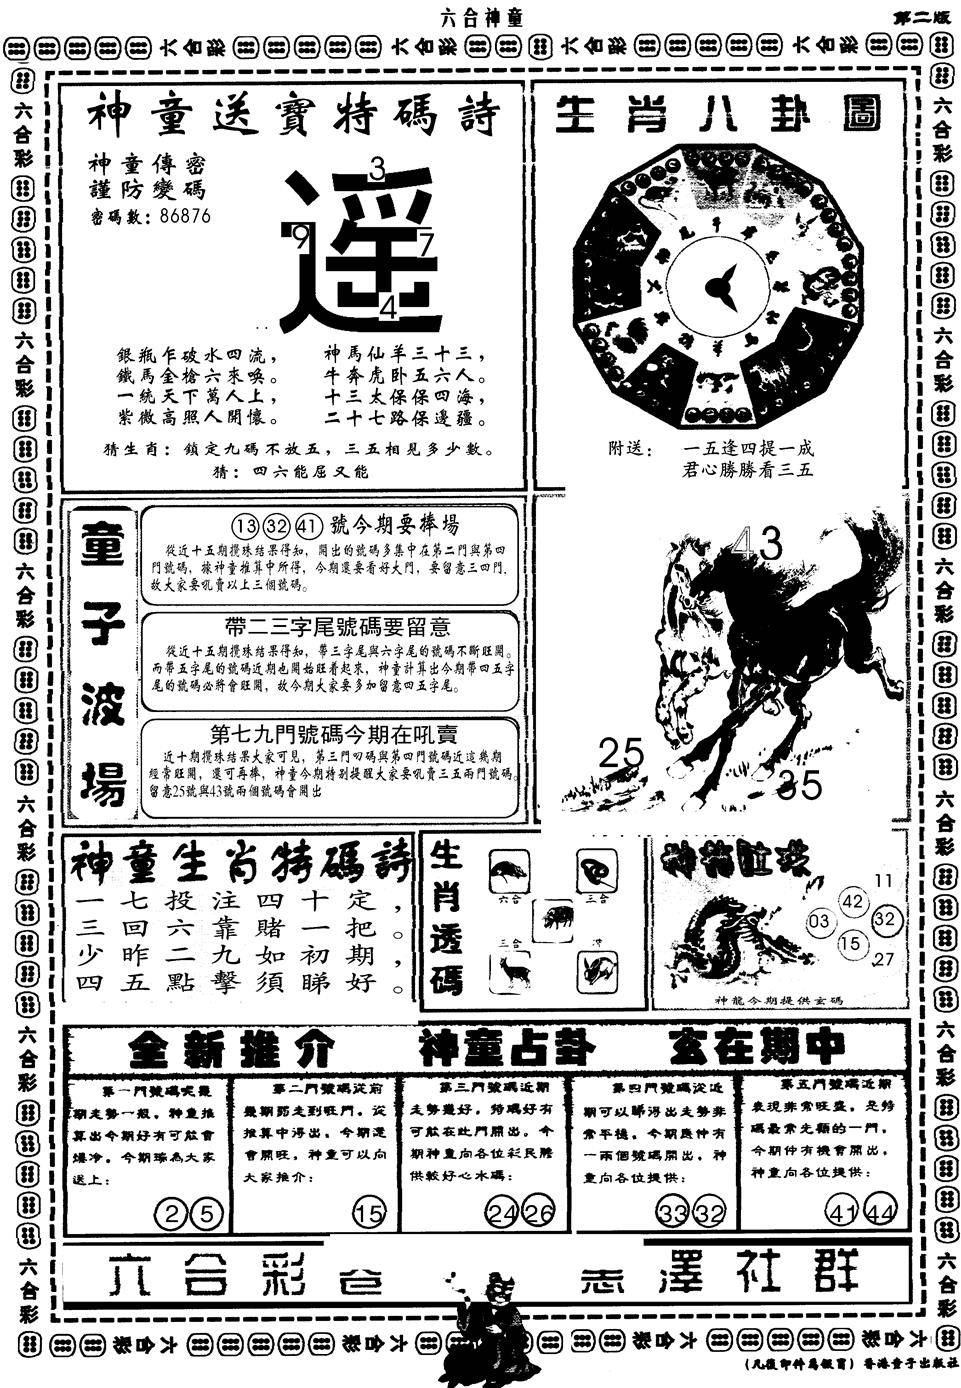 六合神童
第二版
神童送寶特碼詩
神童傳密
謹防變碼
密碼數：86876
遥
3
9
7
4
銀瓶乍破水四流，
鐵馬金槍六來喚。
一統天下萬人上，
紫微高照人開懷。
神馬仙羊三十三，
牛奔虎卧五六人。
十三太保保四海，
二十七路保邊疆。
猜生肖：鎖定九碼不放五，三五相見多少數。
猜：四六能屈又能
生肖八卦圖
附送：一五逢四提一成
君心勝勝看三五
童子波場
13 32 41 號今期要捧場
從近十五期攪珠結果得知，開出的號碼多集中在第二門與第四
門號碼，據神童推算中所得，今期還要看好大門，要留意三四門.
故大家要吼賣以上三個號碼。
帶二三字尾號碼要留意
從近十五期攪珠結果得知，帶三字尾與六字尾的號碼不斷旺開。
而帶五字尾的號碼近期也開始旺着起來，神童計算出今期帶四五字
尾的號碼必將會旺開，故今期大家要多加留意四五字尾。
第七九門號碼今期在吼賣
近十期攪珠結果大家可見，第三門四碼與第四門號碼近這幾期
經常旺開，還可再捧，神童今期特別提醒大家要吼賣三五兩門號碼。
留意25號與43號兩個號碼會開出
43
25
35
神童生肖特碼詩
一七投注四十定，
三回六靠賭一把。
少昨二九如初期，
四五點擊須睇好。
生肖透碼
六合
三合
三合
冲
11
42
03
32
15
27
神龍今期提供玄碼
全新推介 神童占卦 玄在期中
第一門號碼呎幾
期走勢一般，神童推
算出今期好有可能會
爆冷，今期琢為大家
送上：
2 5
第二門號碼從前
幾期易走到旺門，從
推算中得出，今期還
會開旺，神童可以向
大家推介：
15
第三門號碼近期
走勢幾好，特碼好有
可能在此門開出。今
期神童向各位彩民隆
供較好心水碼：
24 26
第四門號碼從近
期可以睇得出走勢非
常平穩，今期應仲有
一兩個號碼開出，神
童向各位提供：
33 32
第五門號碼近期
表現非常旺盛，是特
碼最常光顧的一門，
今期仲有機會開出，
神童向各位提供：
41 44
六合彩
澤社群
香港童子出版社